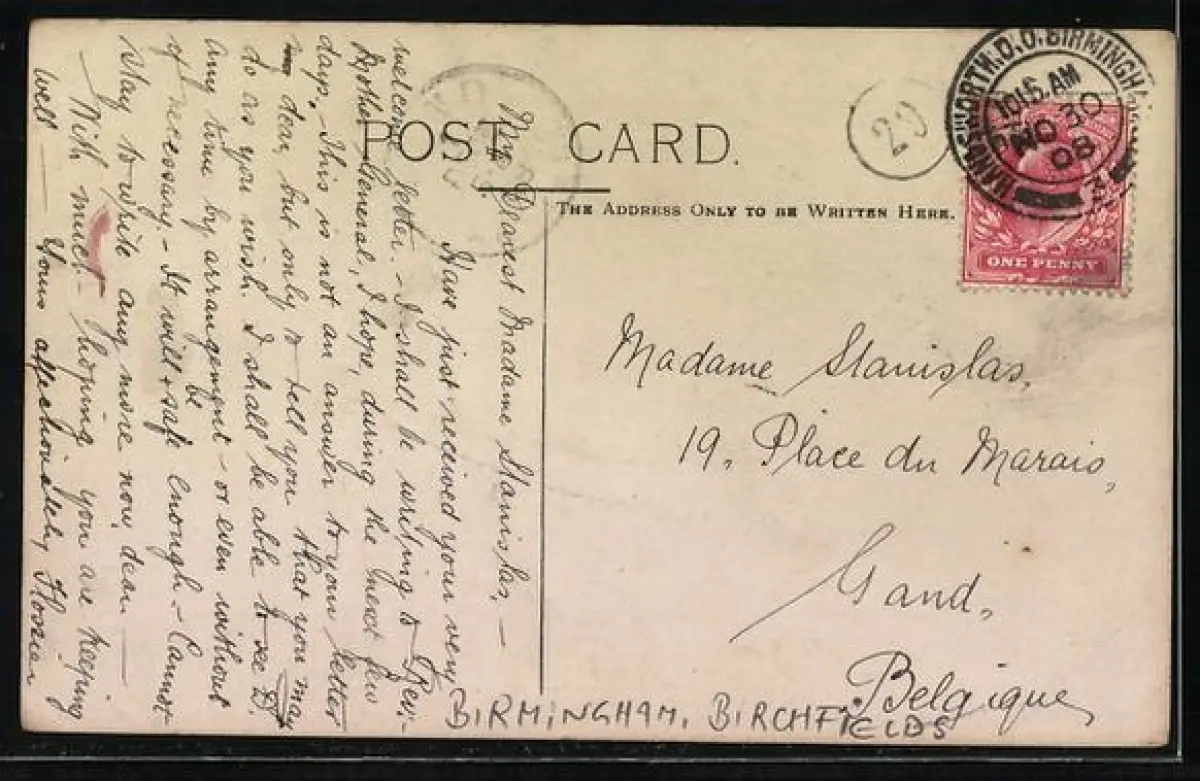 POST CARD.
THE ADDRESS ONLY TO BE WRITTEN HERE.
HANDSWORTH. D.O. BIRMINGHAM
10 15 AM
NO 30
08
ONE PENNY
29
My Dearest Madame Stanislas, —
Have just received your very
welcome letter. — I shall be writing to Rev.
Mother General, I hope, during the next few
days. — This is not an answer to your letter
dear, but only to tell you that you may
do as you wish. I shall be able to see D.
any time by arrangement — or even without
if necessary. — It will be safe enough — Cannot
stay to write any more now, dear. —
With much — hoping you are keeping
well —
Yours affectionately,
Madame Stanislas,
19, Place du Marais,
Gand,
Belgique
BIRMINGHAM, BIRCHFIELDS